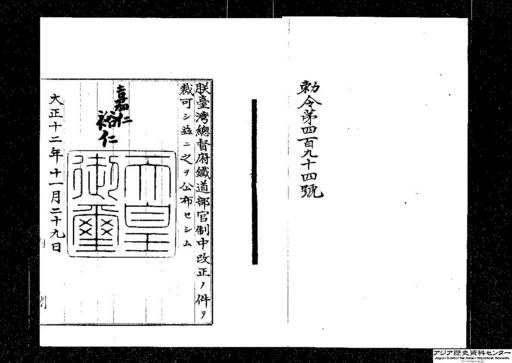 勅令第四百九十四號
朕臺灣總督府鐵道部官制中改正ノ件ヲ
裁可シ玆ニ之ヲ公布セシム
嘉仁
裕仁
天皇
御璽
大正十二年十一月二十九日
アジア歴史資料センター
Japan Center for Asian Historical Records